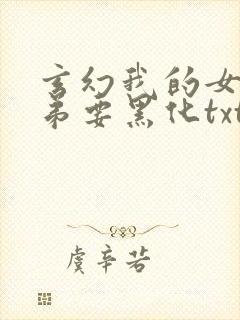 玄幻我的女
弟要黑化txt
虞辛若